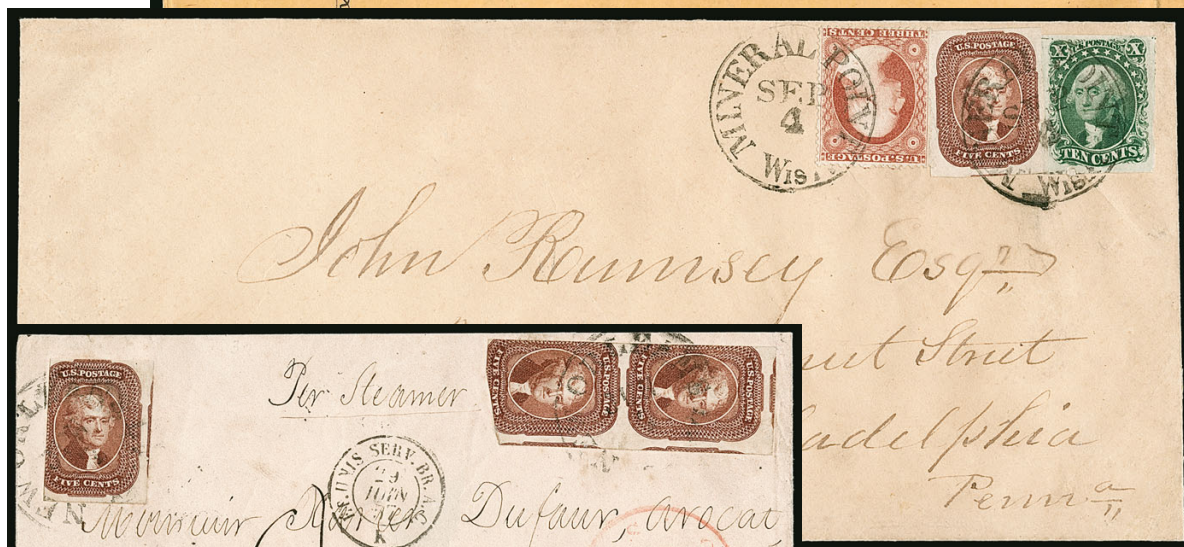 MINERAL POINT
SEP
4
WIS
THREE CENTS
U.S. POSTAGE
U.S. POSTAGE
FIVE CENTS
X U.S. POSTAGE X
TEN CENTS
WIS
John Rumsey Esqr
Street
Penna
U.S. POSTAGE
FIVE CENTS
NEW
Per Steamer
U.S. POSTAGE
FIVE CENTS
U.S. POSTAGE
FIVE CENTS
ET. UNIS SERV. BR. A.C.
29
JUIN
K
Monsieur
Dufaur, avocat